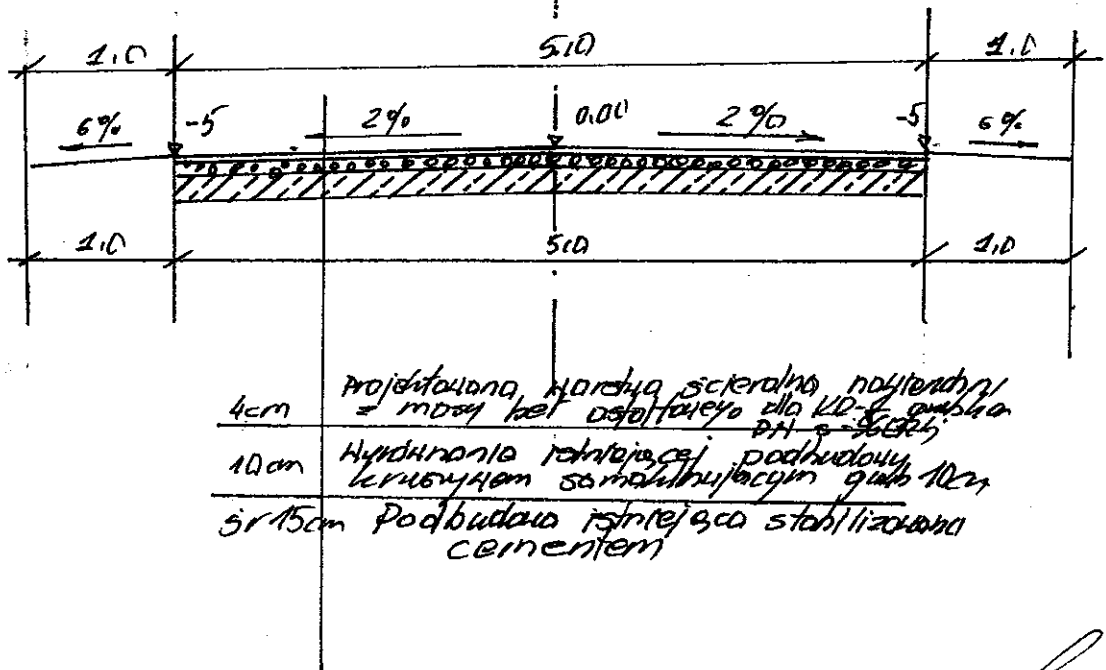 1.0 5.0 1.0
6% -5 2% 0.00 2% -5 6%
1.0 5.0 1.0
4cm Projektowana warstwa ścieralna nawierzchni
z masy bet asfaltowego dla
10cm Wyrównanie istniejącej podbudowy
kruszywem samoklinującym grub 10cm
śr 15cm Podbudowa istniejąca stabilizowana
cementem